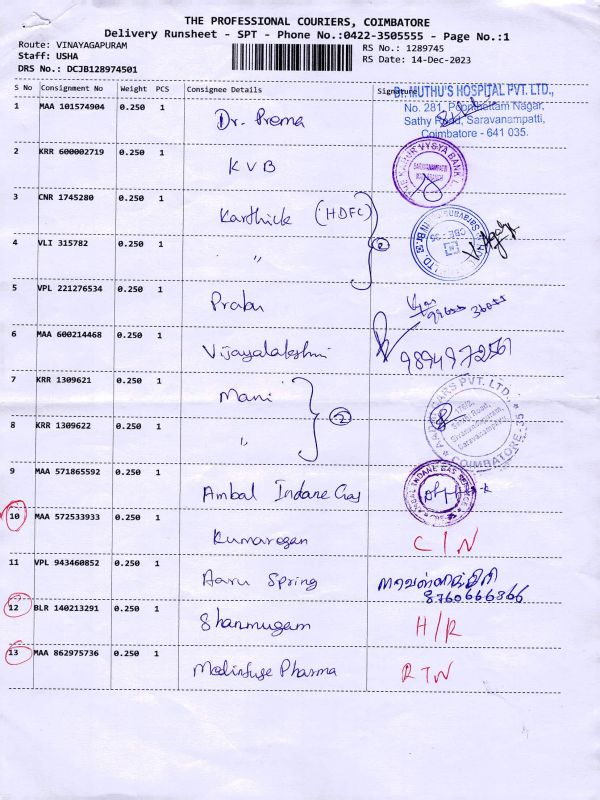 THE PROFESSIONAL COURIERS, COIMBATORE
Delivery Runsheet - SPT - Phone No.:0422-3505555 - Page No.:1
Route: VINAYAGAPURAM
RS No.: 1289745
Staff: USHA
RS Date: 14-Dec-2023
DRS No.: DCJB128974501
S No Consignment No Weight PCS Consignee Details Signature
1 MAA 101574904 0.250 1 Dr. Prema
Dr. MUTHU'S HOSPITAL PVT. LTD.,
No. 281, Poonthottam Nagar,
Sathy Road, Saravanampatti,
Coimbatore - 641 035.
2 KRR 600002719 0.250 1 KVB
3 CNR 1745280 0.250 1 Karthick (HDFC)
4 VLI 315782 0.250 1 " 2
5 VPL 221276534 0.250 1 Prabu
6 MAA 600214468 0.250 1 Vijayalakshmi
7 KRR 1309621 0.250 1 Mani
8 KRR 1309622 0.250 1 " 2
CARS PVT. LTD.,
COIMBATORE
9 MAA 571865592 0.250 1 Ambal Indane Gas
AMBAL INDANE GAS SERVICE
10 MAA 572533933 0.250 1 Kumaresan C/N
11 VPL 943460852 0.250 1 Aaru Spring
8760666366
12 BLR 140213291 0.250 1 Shanmugam H/R
13 MAA 862975736 0.250 1 Medinfuse Pharma RTN